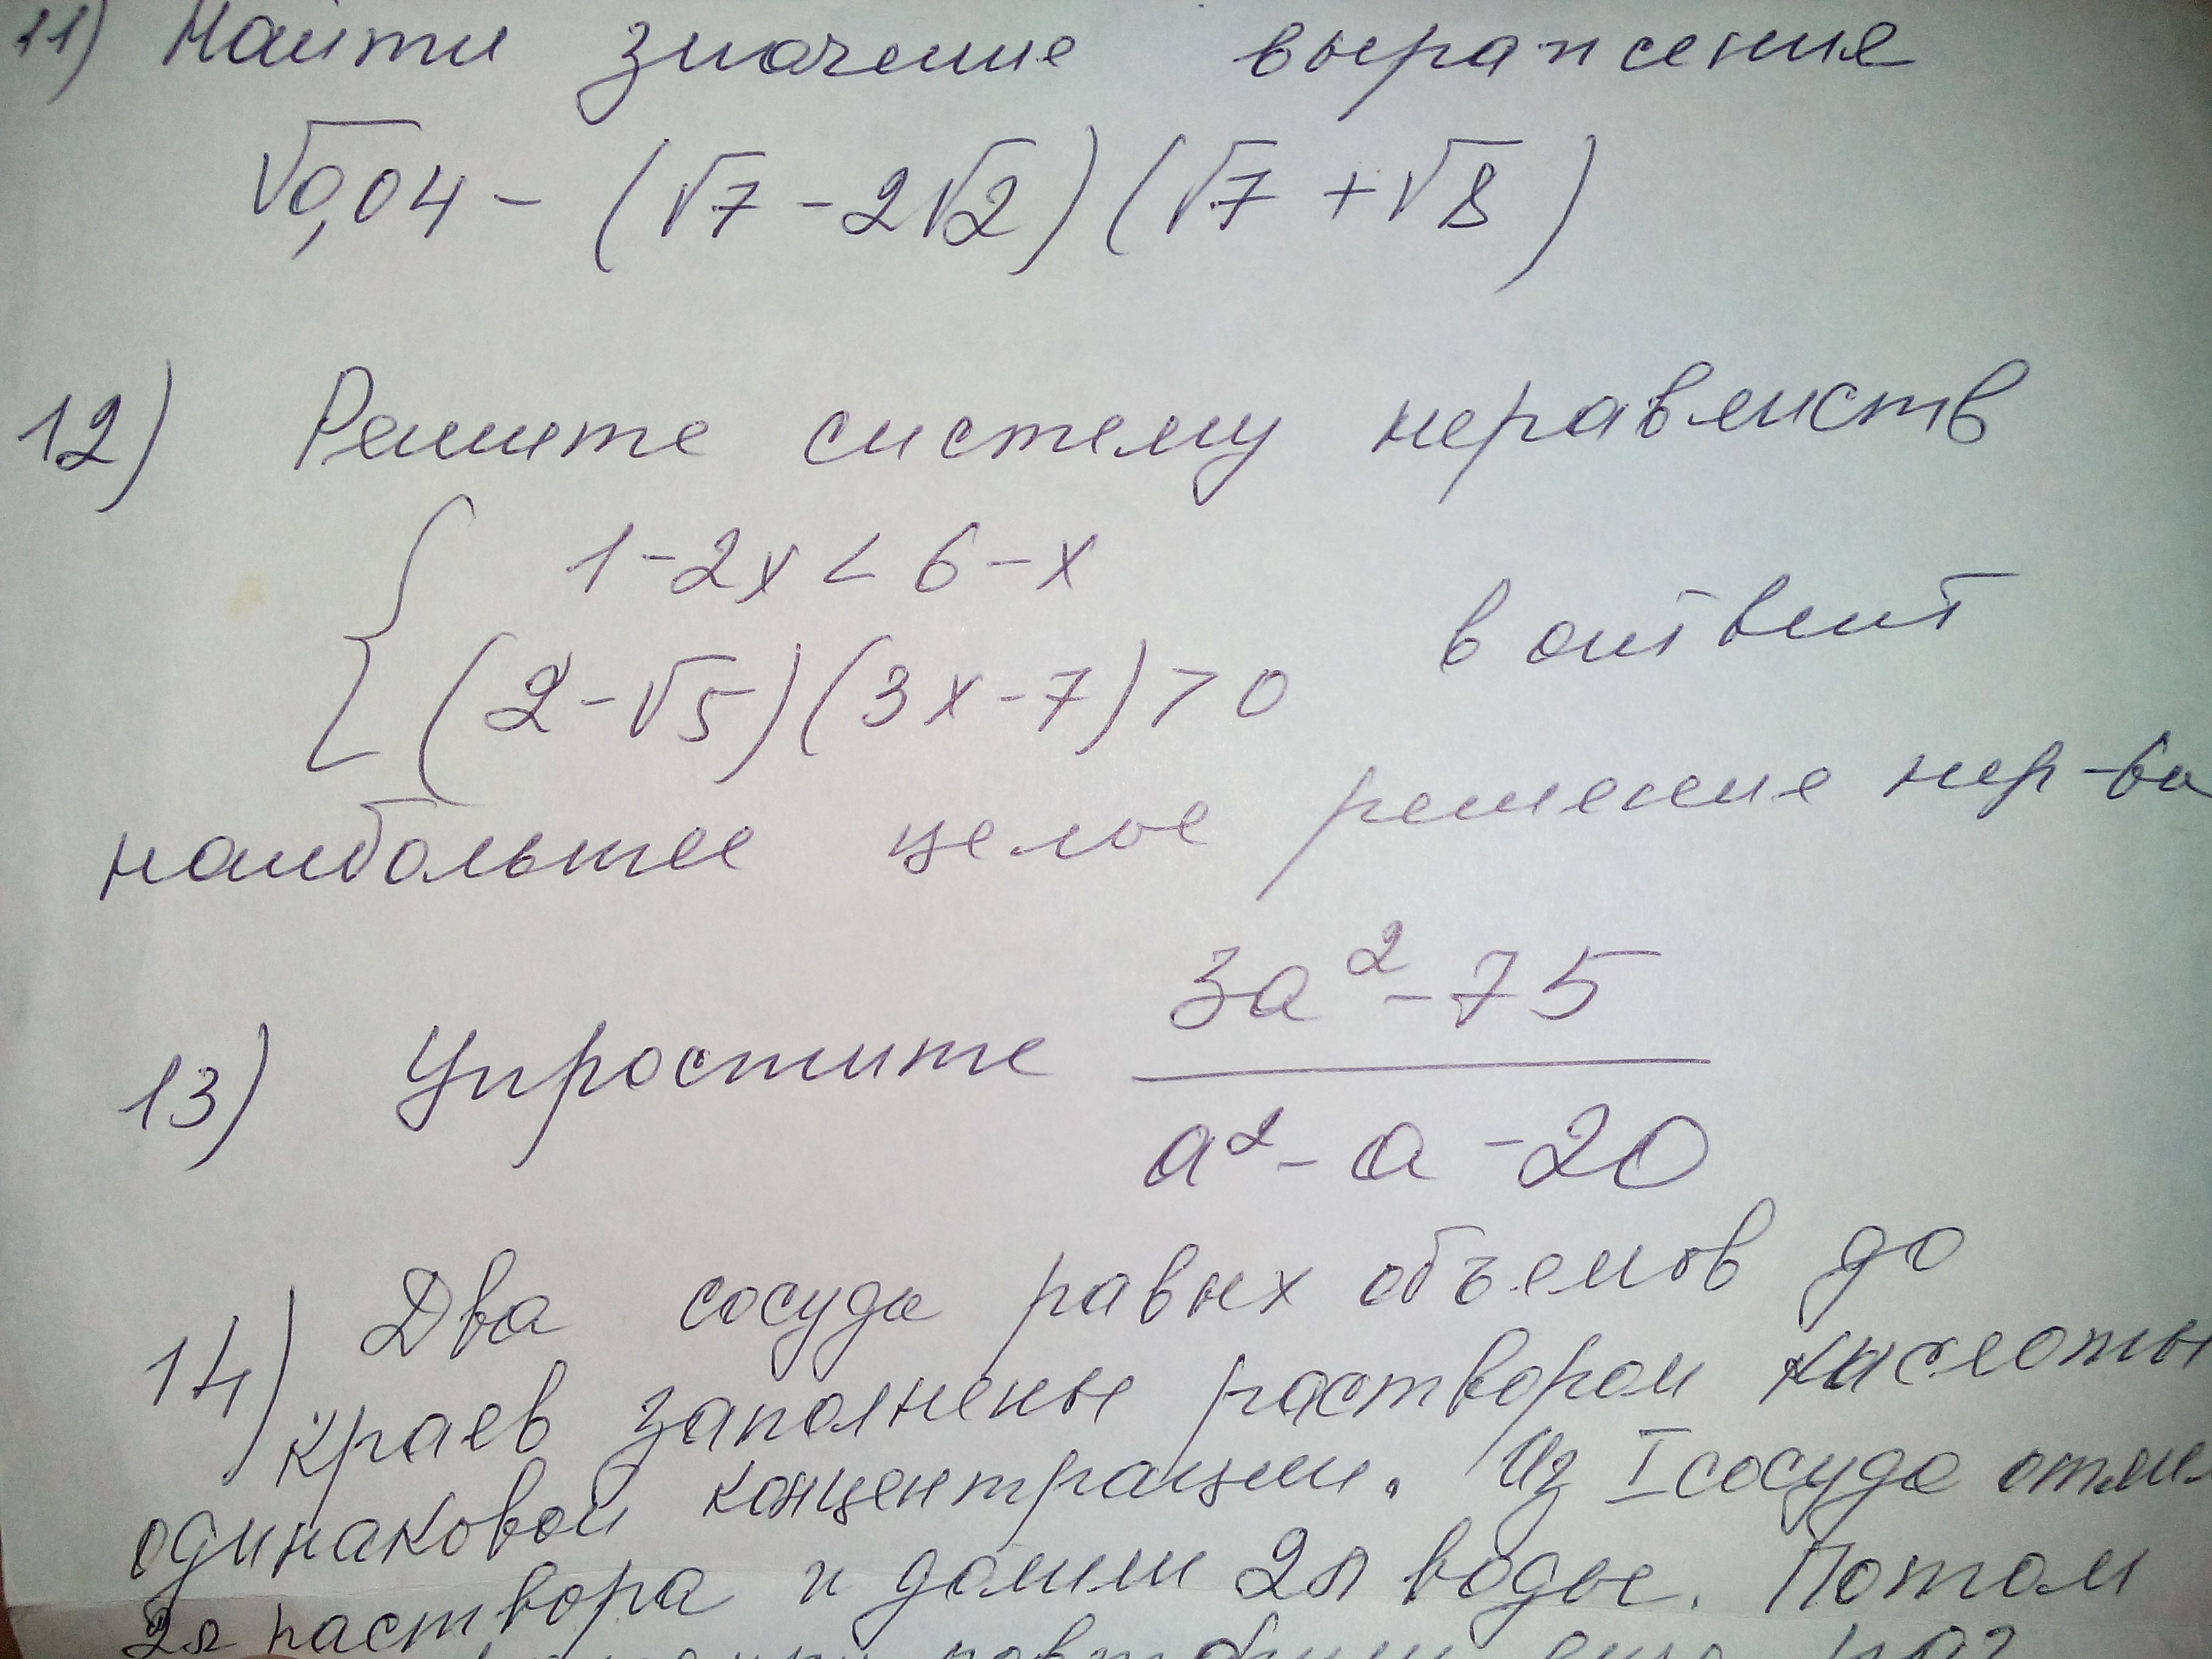 11) Найти значение выражения
√0,04 - (√7 - 2√2)(√7 + √8)
12) Решите систему неравенств
{ 1 - 2x < 6 - x
(2 - √5)(3x - 7) > 0 в ответ
наибольшее целое решение нер-ва
13) Упростите (3a² - 75)/(a² - a - 20)
14) Два сосуда равных объемов до
краев заполнены раствором кислоты
одинаковой концентрации. Из I сосуда отли-
2л раствора и долили 2л воды. Потом
повторили еще раз